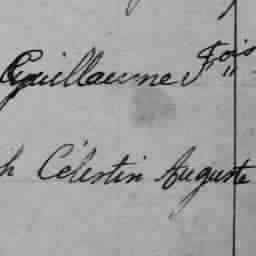 Guillaume Fois
h Célestin Auguste